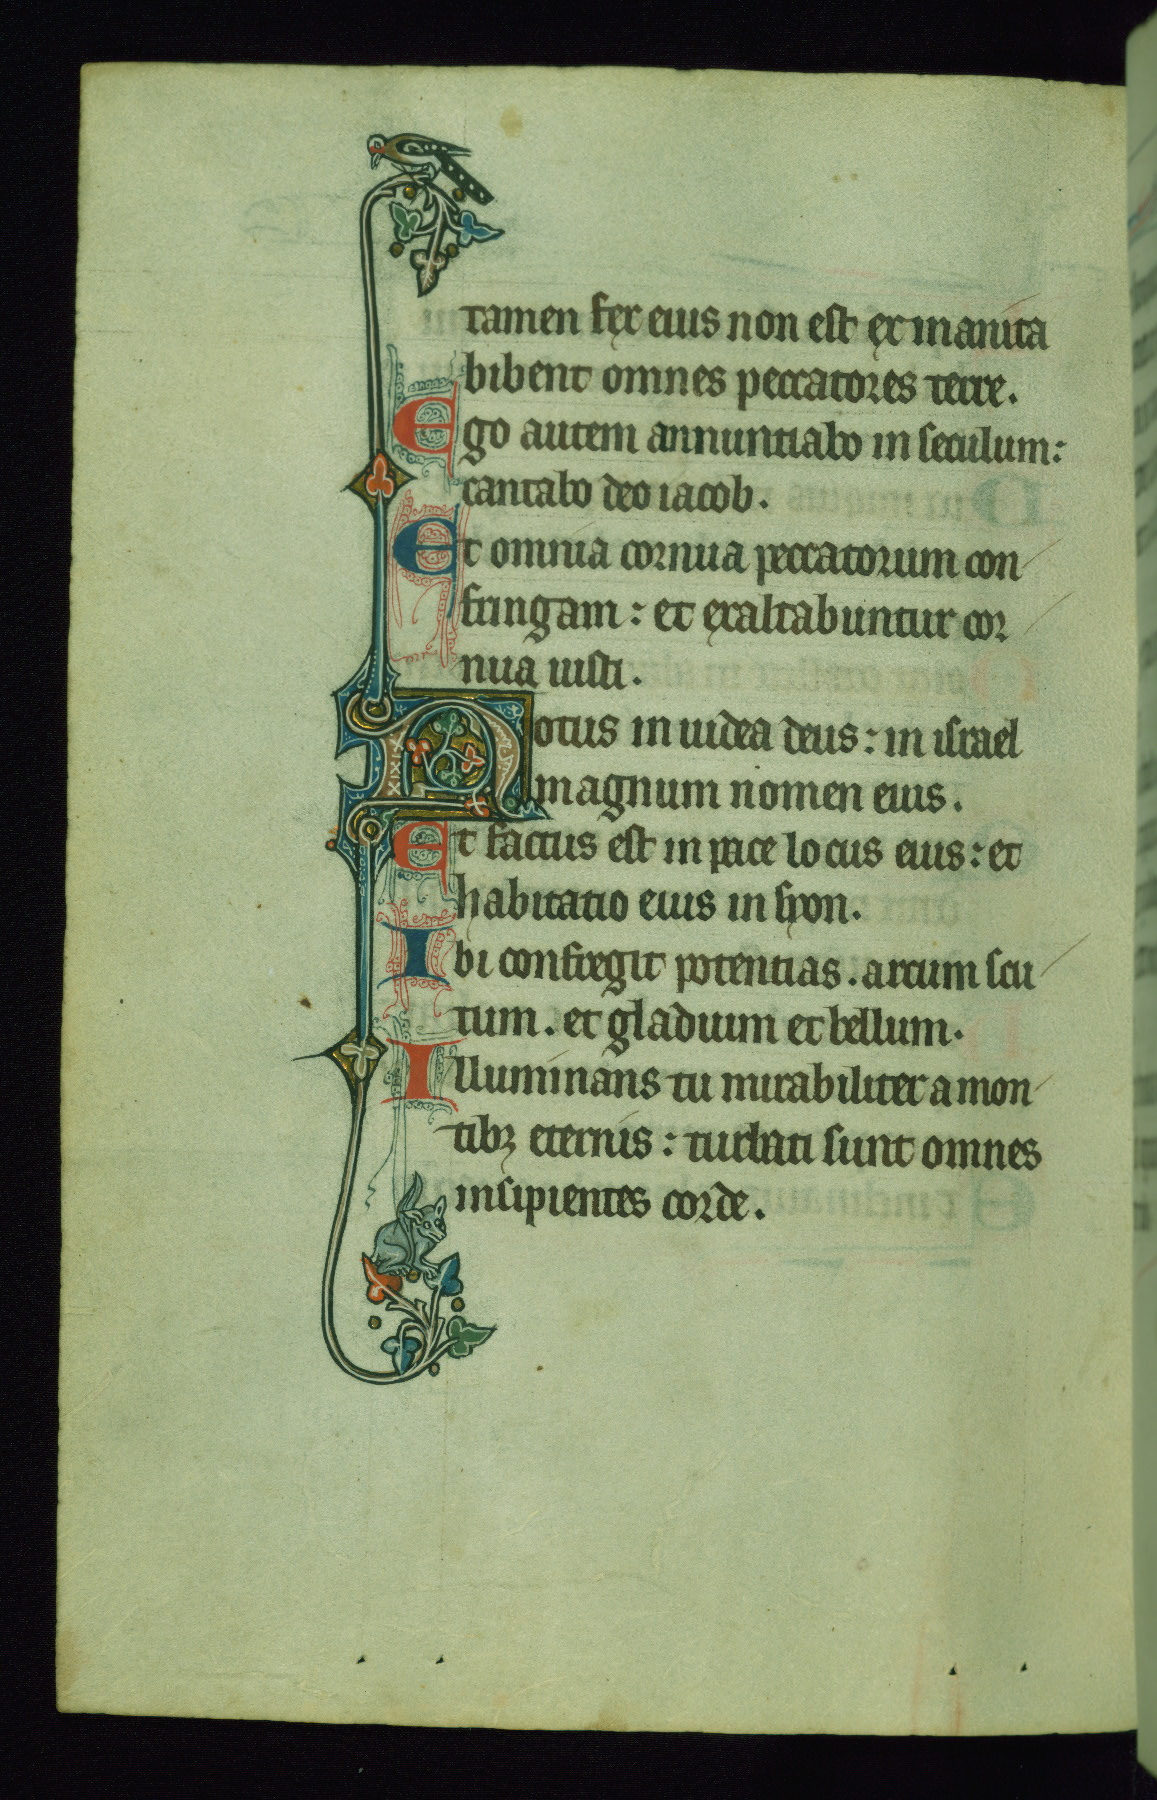 tamen fex eius non est ex inanita
bibent omnes peccatores terre.
Ego autem annuntiabo in seculum:
cantabo deo iacob.
Et omnia cornua peccatorum con
fringam: et exaltabuntur cor
nua iusti.
Notus in iudea deus: in israel
magnum nomen eius.
Et factus est in pace locus eius: et
habitatio eius in syon.
Ibi confregit potentias. arcum scu
tum. et gladium et bellum.
Illuminans tu mirabiliter a mon
tibꝫ eternis: turbati sunt omnes
insipientes corde.